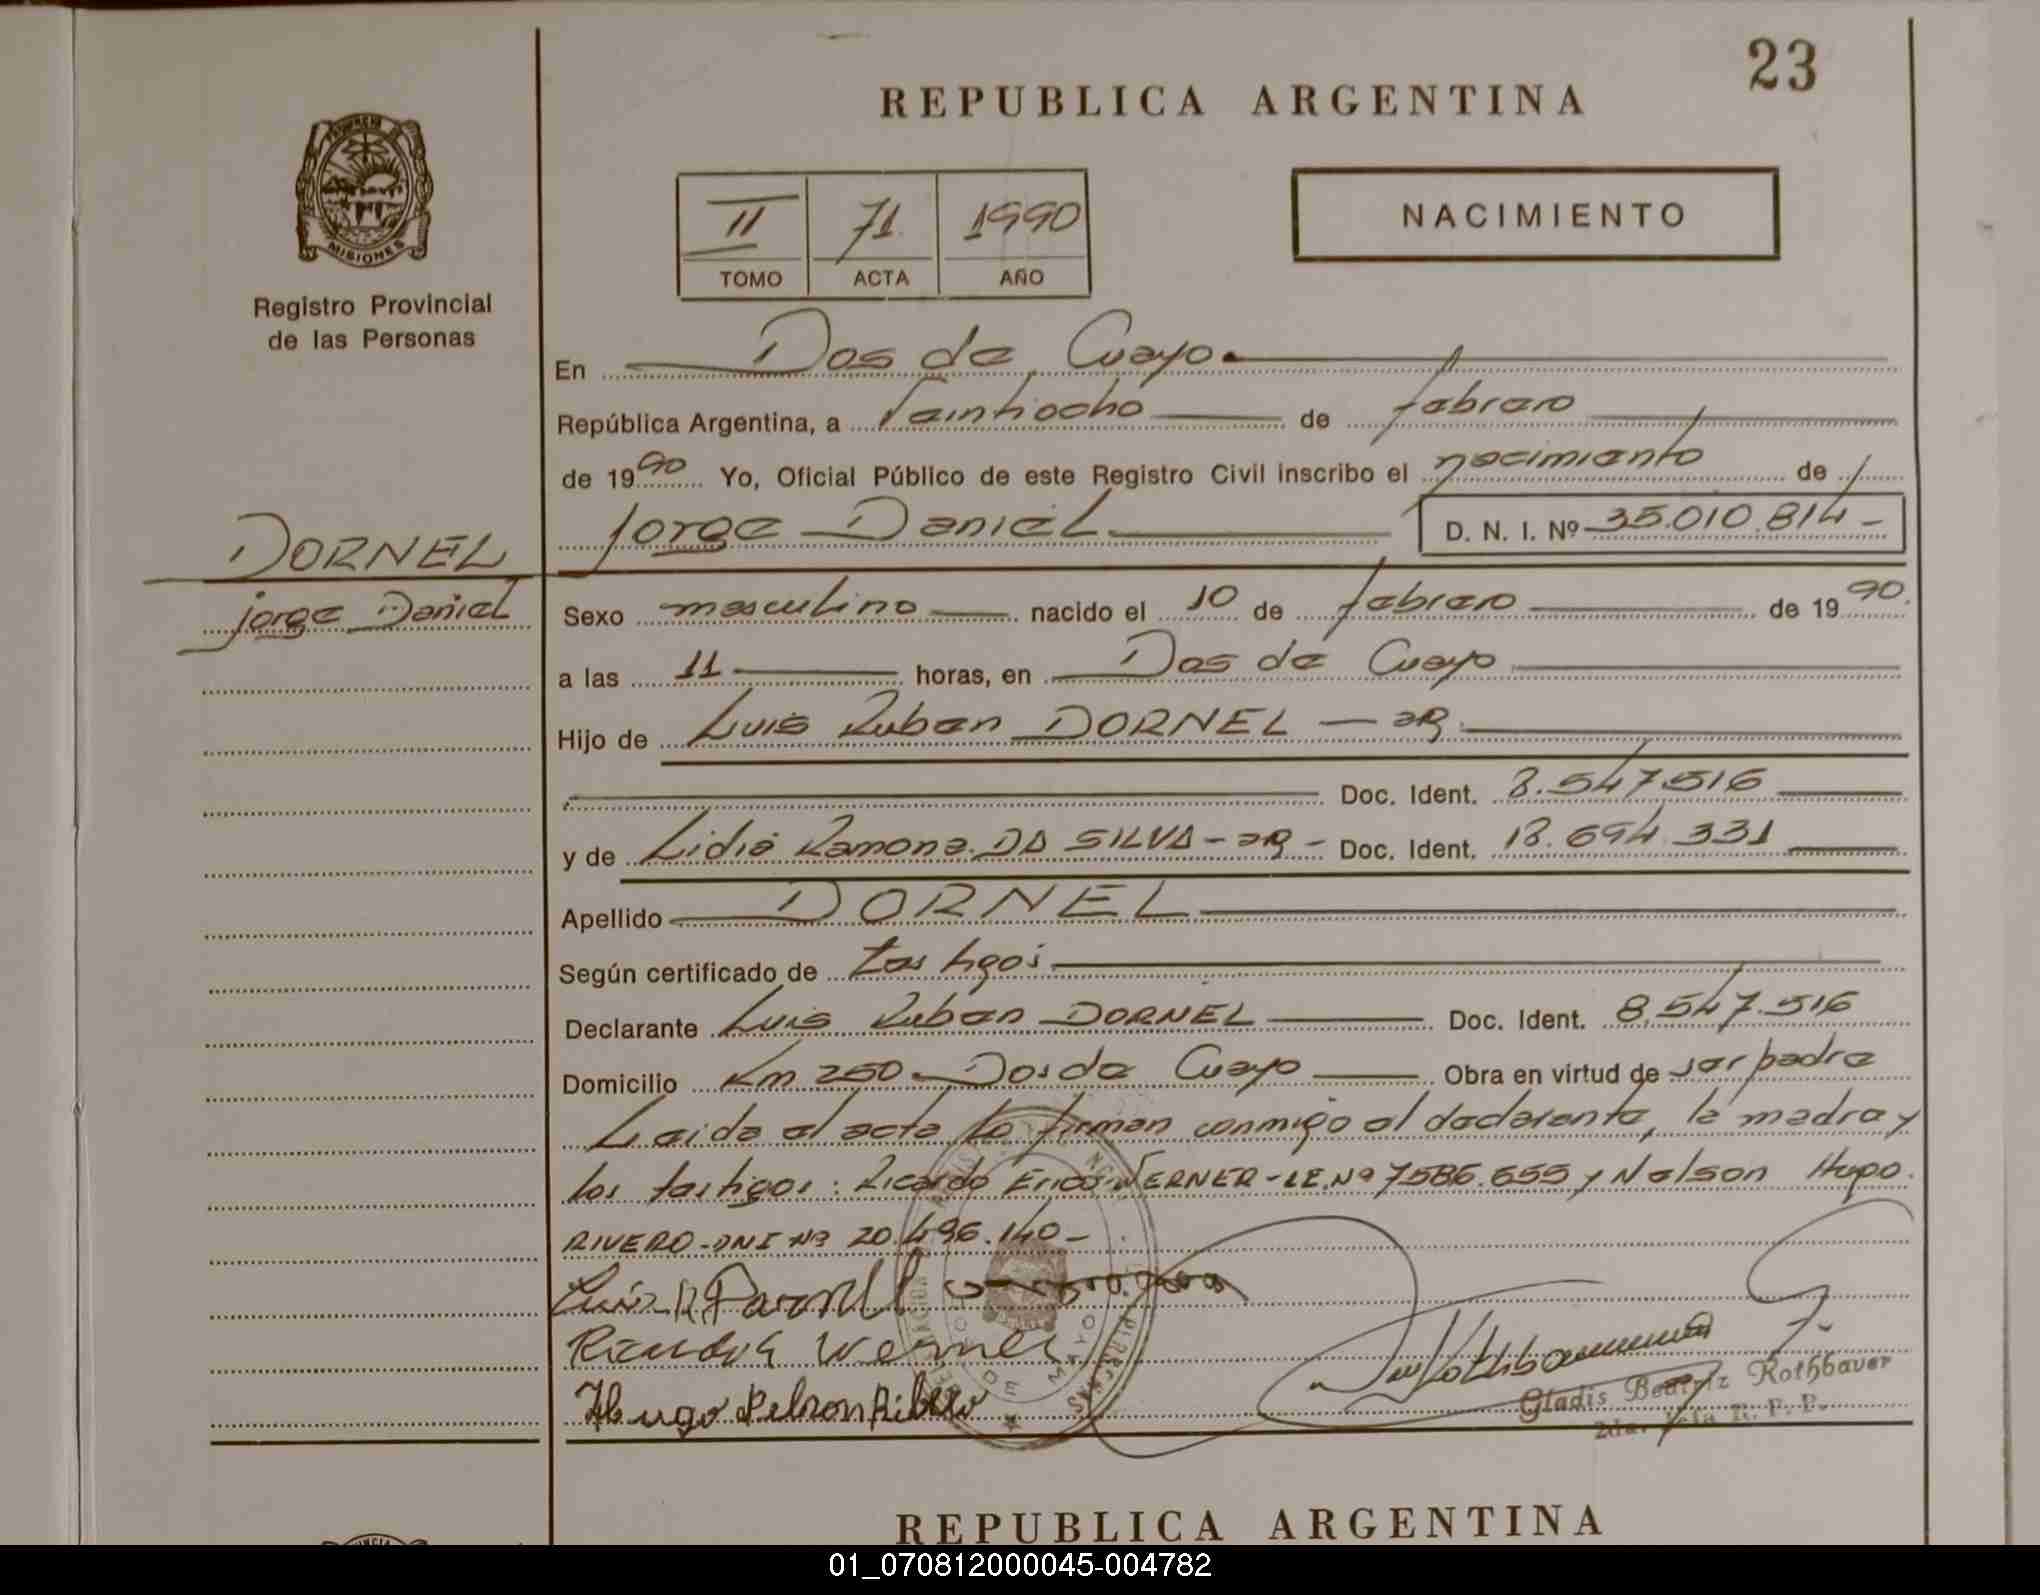 23
REPUBLICA ARGENTINA
PROVINCIA DE
MISIONES
Registro Provincial
de las Personas
II 71 1990
TOMO ACTA AÑO
NACIMIENTO
En Dos de Mayo
República Argentina, a Veintiocho de febrero
de 1990 Yo, Oficial Público de este Registro Civil inscribo el nacimiento de
Jorge Daniel D. N. I. Nº 35.010.814-
DORNEL
Jorge Daniel
Sexo masculino nacido el 10 de febrero de 1990.
a las 11 horas, en Dos de Mayo
Hijo de Luis Ruben DORNEL — ar.
Doc. Ident. 8.547.516
y de Lidia Ramona DA SILVA - ar - Doc. Ident. 18.694.331
Apellido DORNEL
Según certificado de testigos
Declarante Luis Ruben DORNEL Doc. Ident. 8.547.516
Domicilio Km 250 - Dos de Mayo Obra en virtud de ser padre
Leida el acta la firman conmigo el declarante, la madre y
los testigos: Ricardo Erico WERNER - LE. Nº 7586.655 y Nelson Hugo
RIVERO - DNI Nº 20.496.140 -
Luis R Dornel
Ricardo Werner
Hugo Nelson Ribero
DOS DE MAYO
Gladis Beatriz Rothbauer
2da. Jefa R. P. P.
REPUBLICA ARGENTINA
01_070812000045-004782